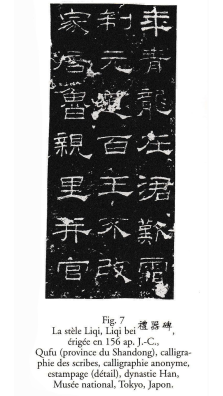 年青龍在涒歎霜
制元道百王不改
家居魯親里并官
Fig. 7
La stèle Liqi, Liqi bei 禮器碑,
érigée en 156 ap. J.-C.,
Qufu (province du Shandong), calligra-
phie des scribes, calligraphie anonyme,
estampage (détail), dynastie Han,
Musée national, Tokyo, Japon.